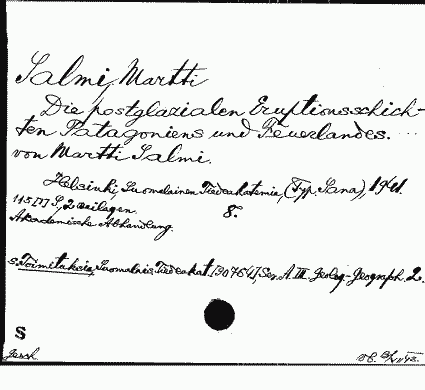 Salmi, Martti
Die postglazialen Eruptionsschich-
ten Patagoniens und Feuerlandes. ...
von Martti Salmi.
Helsinki, Suomalainen Tiedeakatemia, (Typ. Sana), 1941.
115 [7] S., 2 Beilagen. 8.
Akademische Abhandlung.
s. Toimituksia, Suomalais. Tiedeakat. Ser. A. III. Geolog.-Geograph. 2.
S
Gesch.